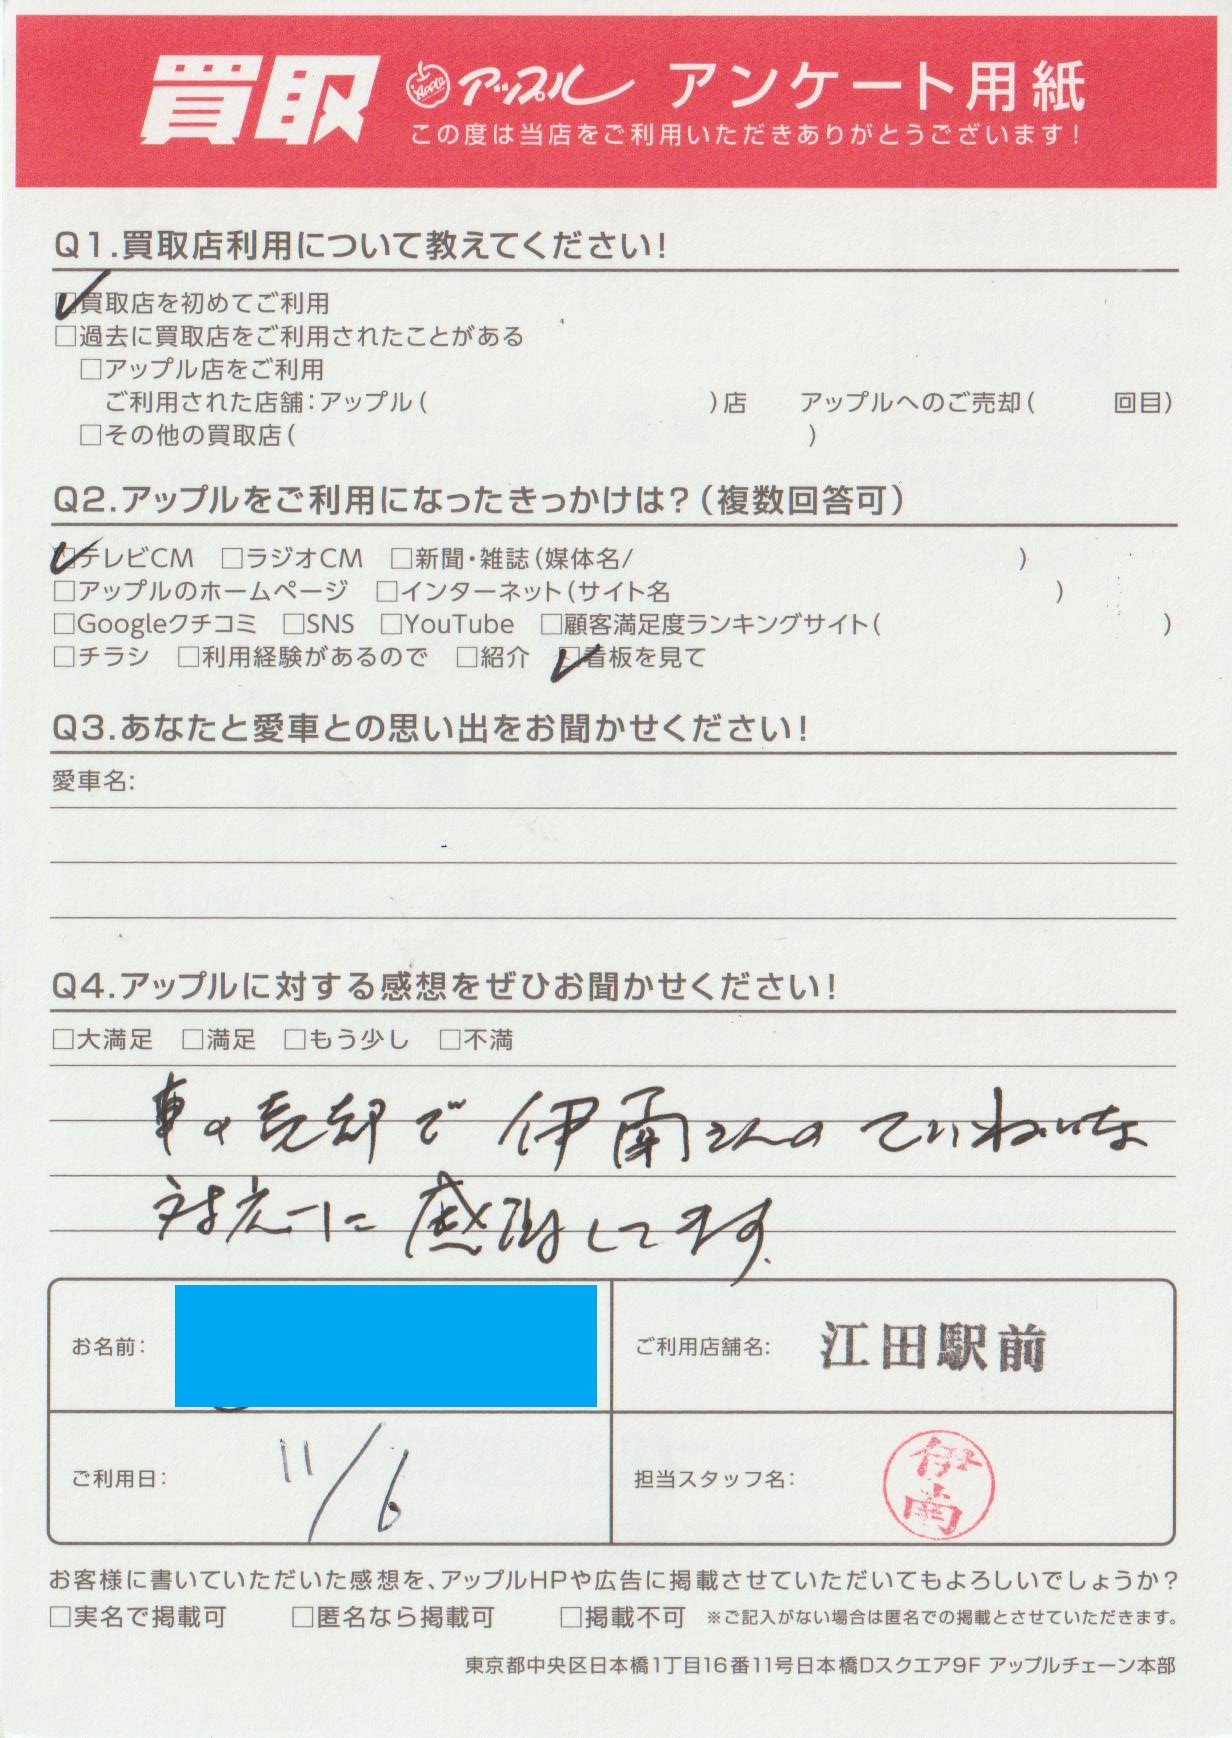 買取 Apple アップル アンケート用紙
この度は当店をご利用いただきありがとうございます!
Q1.買取店利用について教えてください!
☑買取店を初めてご利用
□過去に買取店をご利用されたことがある
□アップル店をご利用
ご利用された店舗:アップル( )店 アップルへのご売却( 回目)
□その他の買取店( )
Q2.アップルをご利用になったきっかけは?(複数回答可)
☑テレビCM □ラジオCM □新聞・雑誌(媒体名/ )
□アップルのホームページ □インターネット(サイト名 )
□Googleクチコミ □SNS □YouTube □顧客満足度ランキングサイト( )
□チラシ □利用経験があるので □紹介 ☑看板を見て
Q3.あなたと愛車との思い出をお聞かせください!
愛車名:
Q4.アップルに対する感想をぜひお聞かせください!
□大満足 □満足 □もう少し □不満
車の売却で伊南さんのていねいな
対応に感謝してます。
お名前: ご利用店舗名: 江田駅前
ご利用日: 11/6 担当スタッフ名: 伊南
お客様に書いていただいた感想を、アップルHPや広告に掲載させていただいてもよろしいでしょうか?
□実名で掲載可 □匿名なら掲載可 □掲載不可 ※ご記入がない場合は匿名での掲載とさせていただきます。
東京都中央区日本橋1丁目16番11号日本橋Dスクエア9F アップルチェーン本部